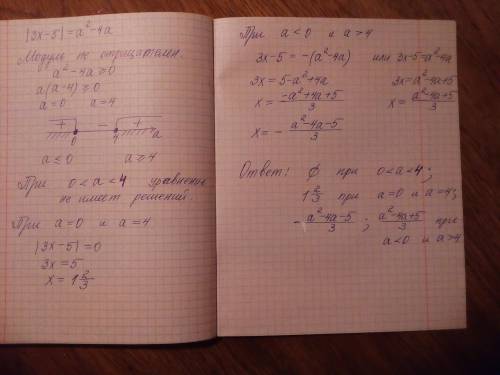 |3x-5|=a²-4a
Модуль не отрицателен.
a²-4a≥0
a(a-4)≥0
a=0 a=4
+ - +
0 4 a
a≤0 a≥4
При 0<a<4 уравнение
не имеет решений.
При a=0 и a=4
|3x-5|=0
3x=5
x=1 2/3
При a<0 и a>4
3x-5=-(a²-4a) или 3x-5=a²-4a
3x=5-a²+4a 3x=a²-4a+5
x=(-a²+4a+5)/3 x=(a²-4a+5)/3
x=-(a²-4a-5)/3
Ответ: ∅ при 0<a<4;
1 2/3 при a=0 и a=4;
-(a²-4a-5)/3; (a²-4a+5)/3 при
a<0 и a>4